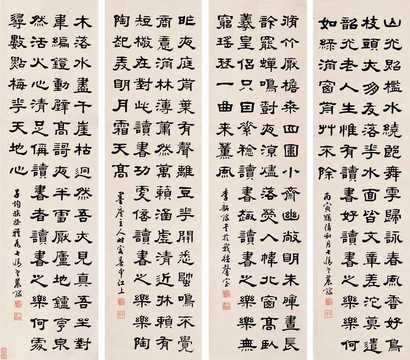 山光照檻水繞廊舞雩歸詠春風香好鳥
枝頭亦朋友落花水面皆文章蹉跎莫遣
韶光老人生惟有讀書好讀書之樂樂何
如綠滿窗前草不除
脩竹壓檐桑四圍小齋幽敞明朱暉晝長
吟罷蟬鳴樹夜深燼落螢入幃北窗高臥
羲皇侶只因素諗讀書趣讀書之樂樂無
窮瑤琴一曲來薰風
昨夜庭前葉有聲籬豆花開蟋蟀鳴不覺
商意滿林薄蕭然萬籟涵虛清近床賴有
短檠在對此讀書功更倍讀書之樂樂陶
陶起弄明月霜天高
墨廬主人時客春申江上
木落水盡千崖枯迥然吾亦見真吾坐對
韋編鐙動壁高歌夜半雪壓廬地鑪烹泉
然活火心清足稱讀書者讀書之樂何處
尋數點梅花天地心